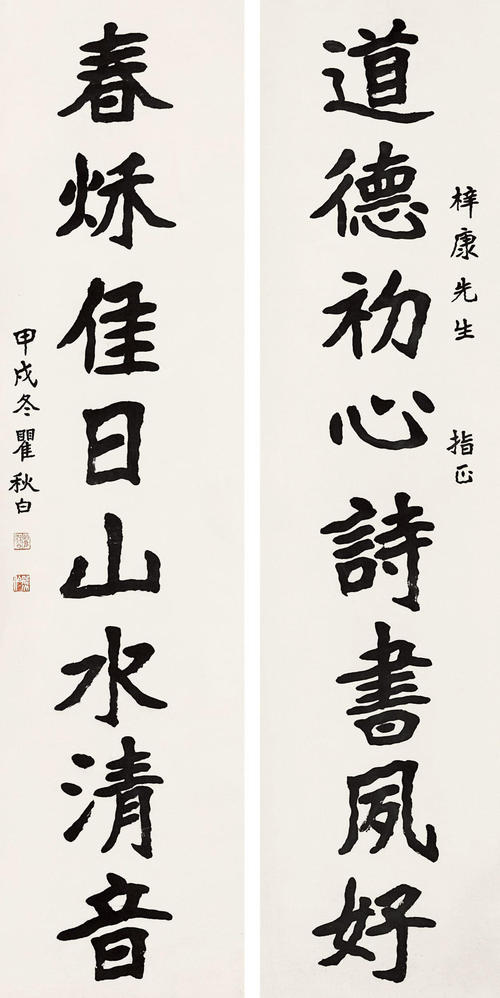 梓康先生 指正
道德初心詩書夙好
春秌佳日山水清音
甲戌冬瞿秋白